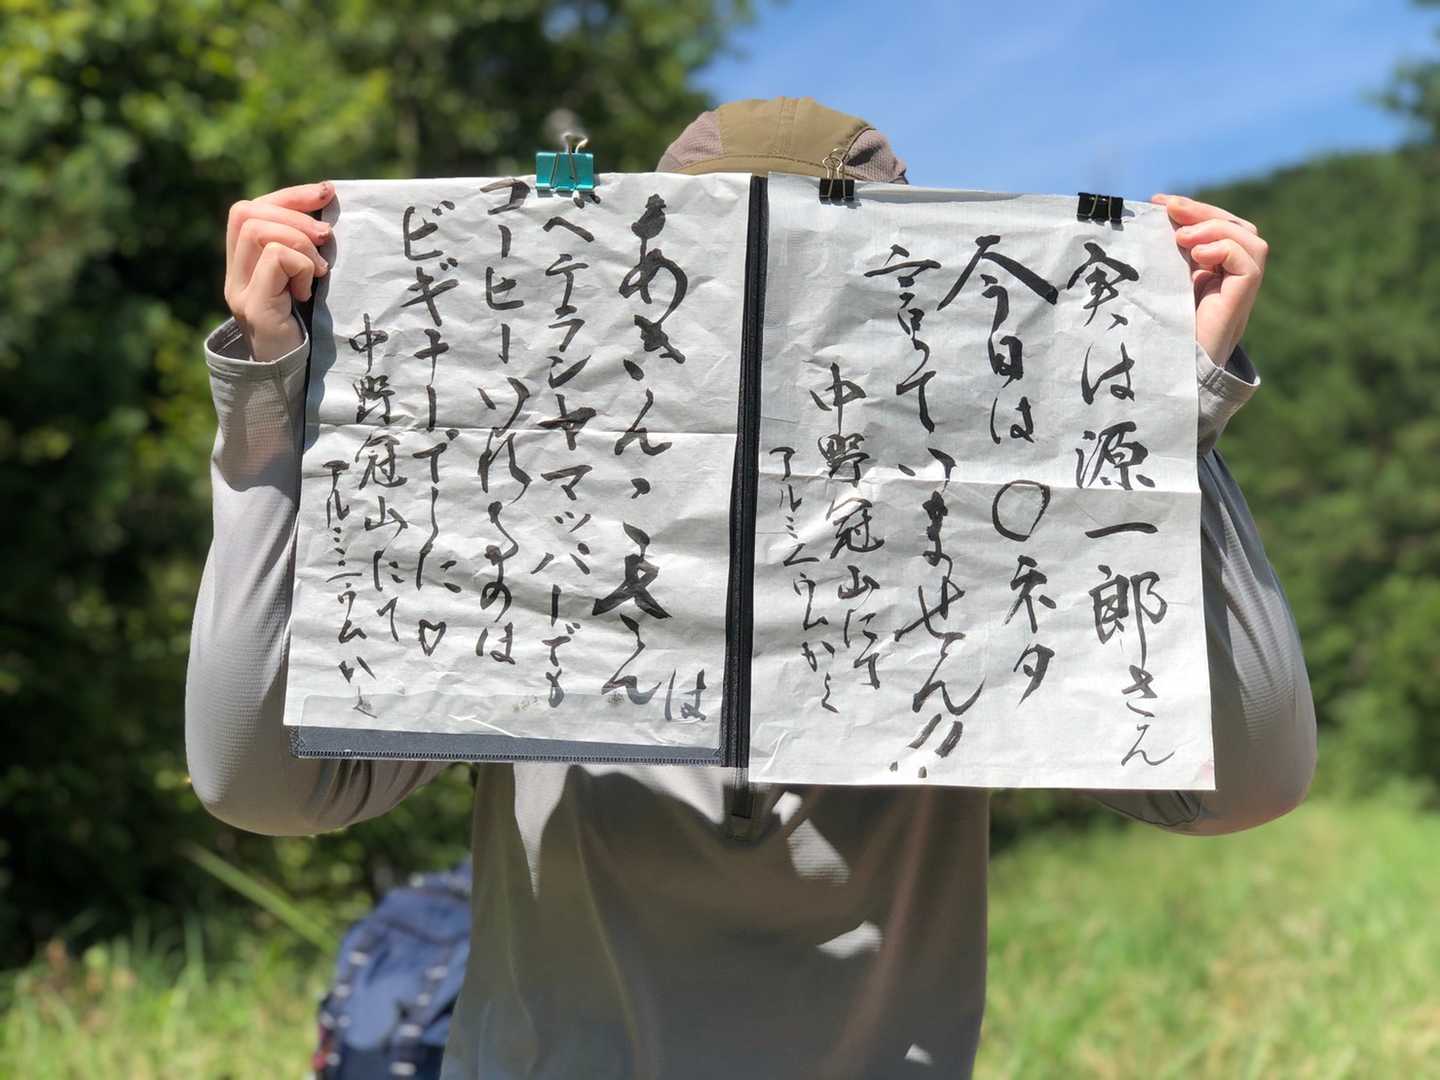 実は源一郎さん
今日は〇ネタ
言っていません!!
中野冠山にて
アルミニウム
長さんは
ベテランヤマッパーでも
コーヒーいれるのは
ビギナーでした♡
中野冠山にて
アルミニウム